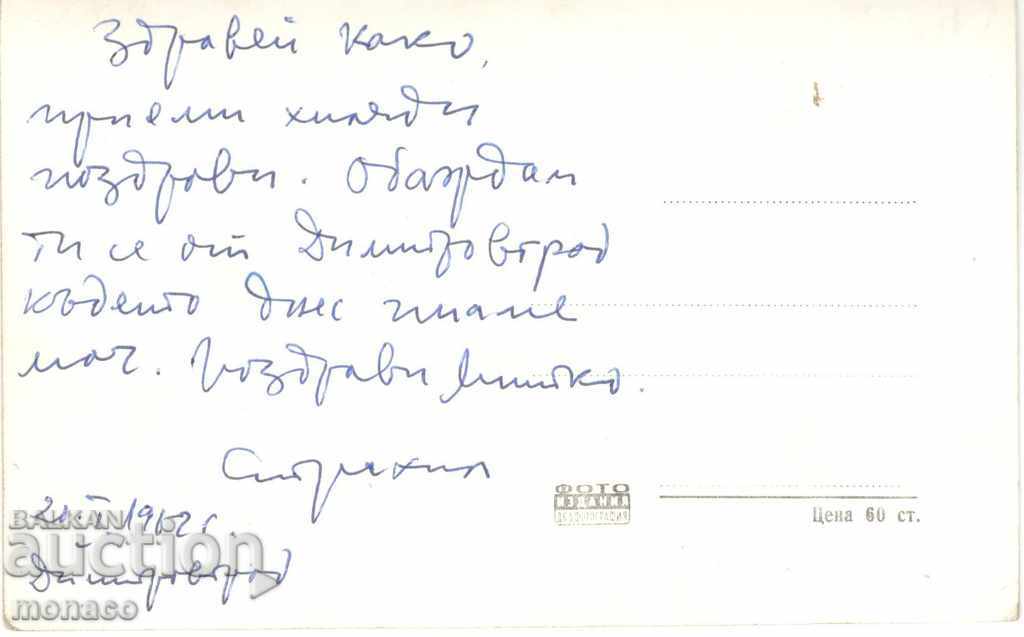 Здравей како,
приеми хиляди
поздрави. Обаждам
ти се от Димитровград
където днес имаме
мач. Поздрави Митко.
Страхил
1962 г.
Димитровград
ФОТО
ИЗДАНИЯ
Цена 60 ст.
BALKAN
auction
monaco